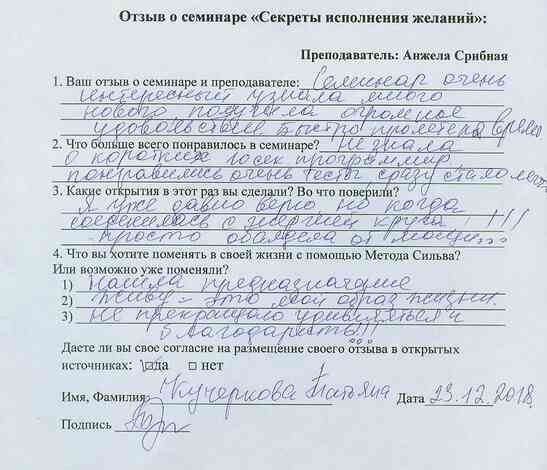 Отзыв о семинаре «Секреты исполнения желаний»:
Преподаватель: Анжела Србная
1. Ваш отзыв о семинаре и преподавателе: Семинар очень
интересный узнала много
нового получила огромное
удовольствие. Быстро пролетело время
2. Что больше всего понравилось в семинаре? Не знала
о коротких
понравились очень тесты сразу стало легко
3. Какие открытия в этот раз вы сделали? Во что поверили?
Я уже давно верю но когда
соединилась с энергией круга !!!
просто обалдела от мощи...
4. Что вы хотите поменять в своей жизни с помощью Метода Сильва?
Или возможно уже поменяли?
1) Нашла предназначение
2) Живу - это мой образ жизни.
3) Не прекращаю удивляться и
благодарить!!!
Даете ли вы свое согласие на размещение своего отзыва в открытых
источниках: да нет
Имя, Фамилия: Кучеркова Татьяна Дата 23.12.2018
Подпись